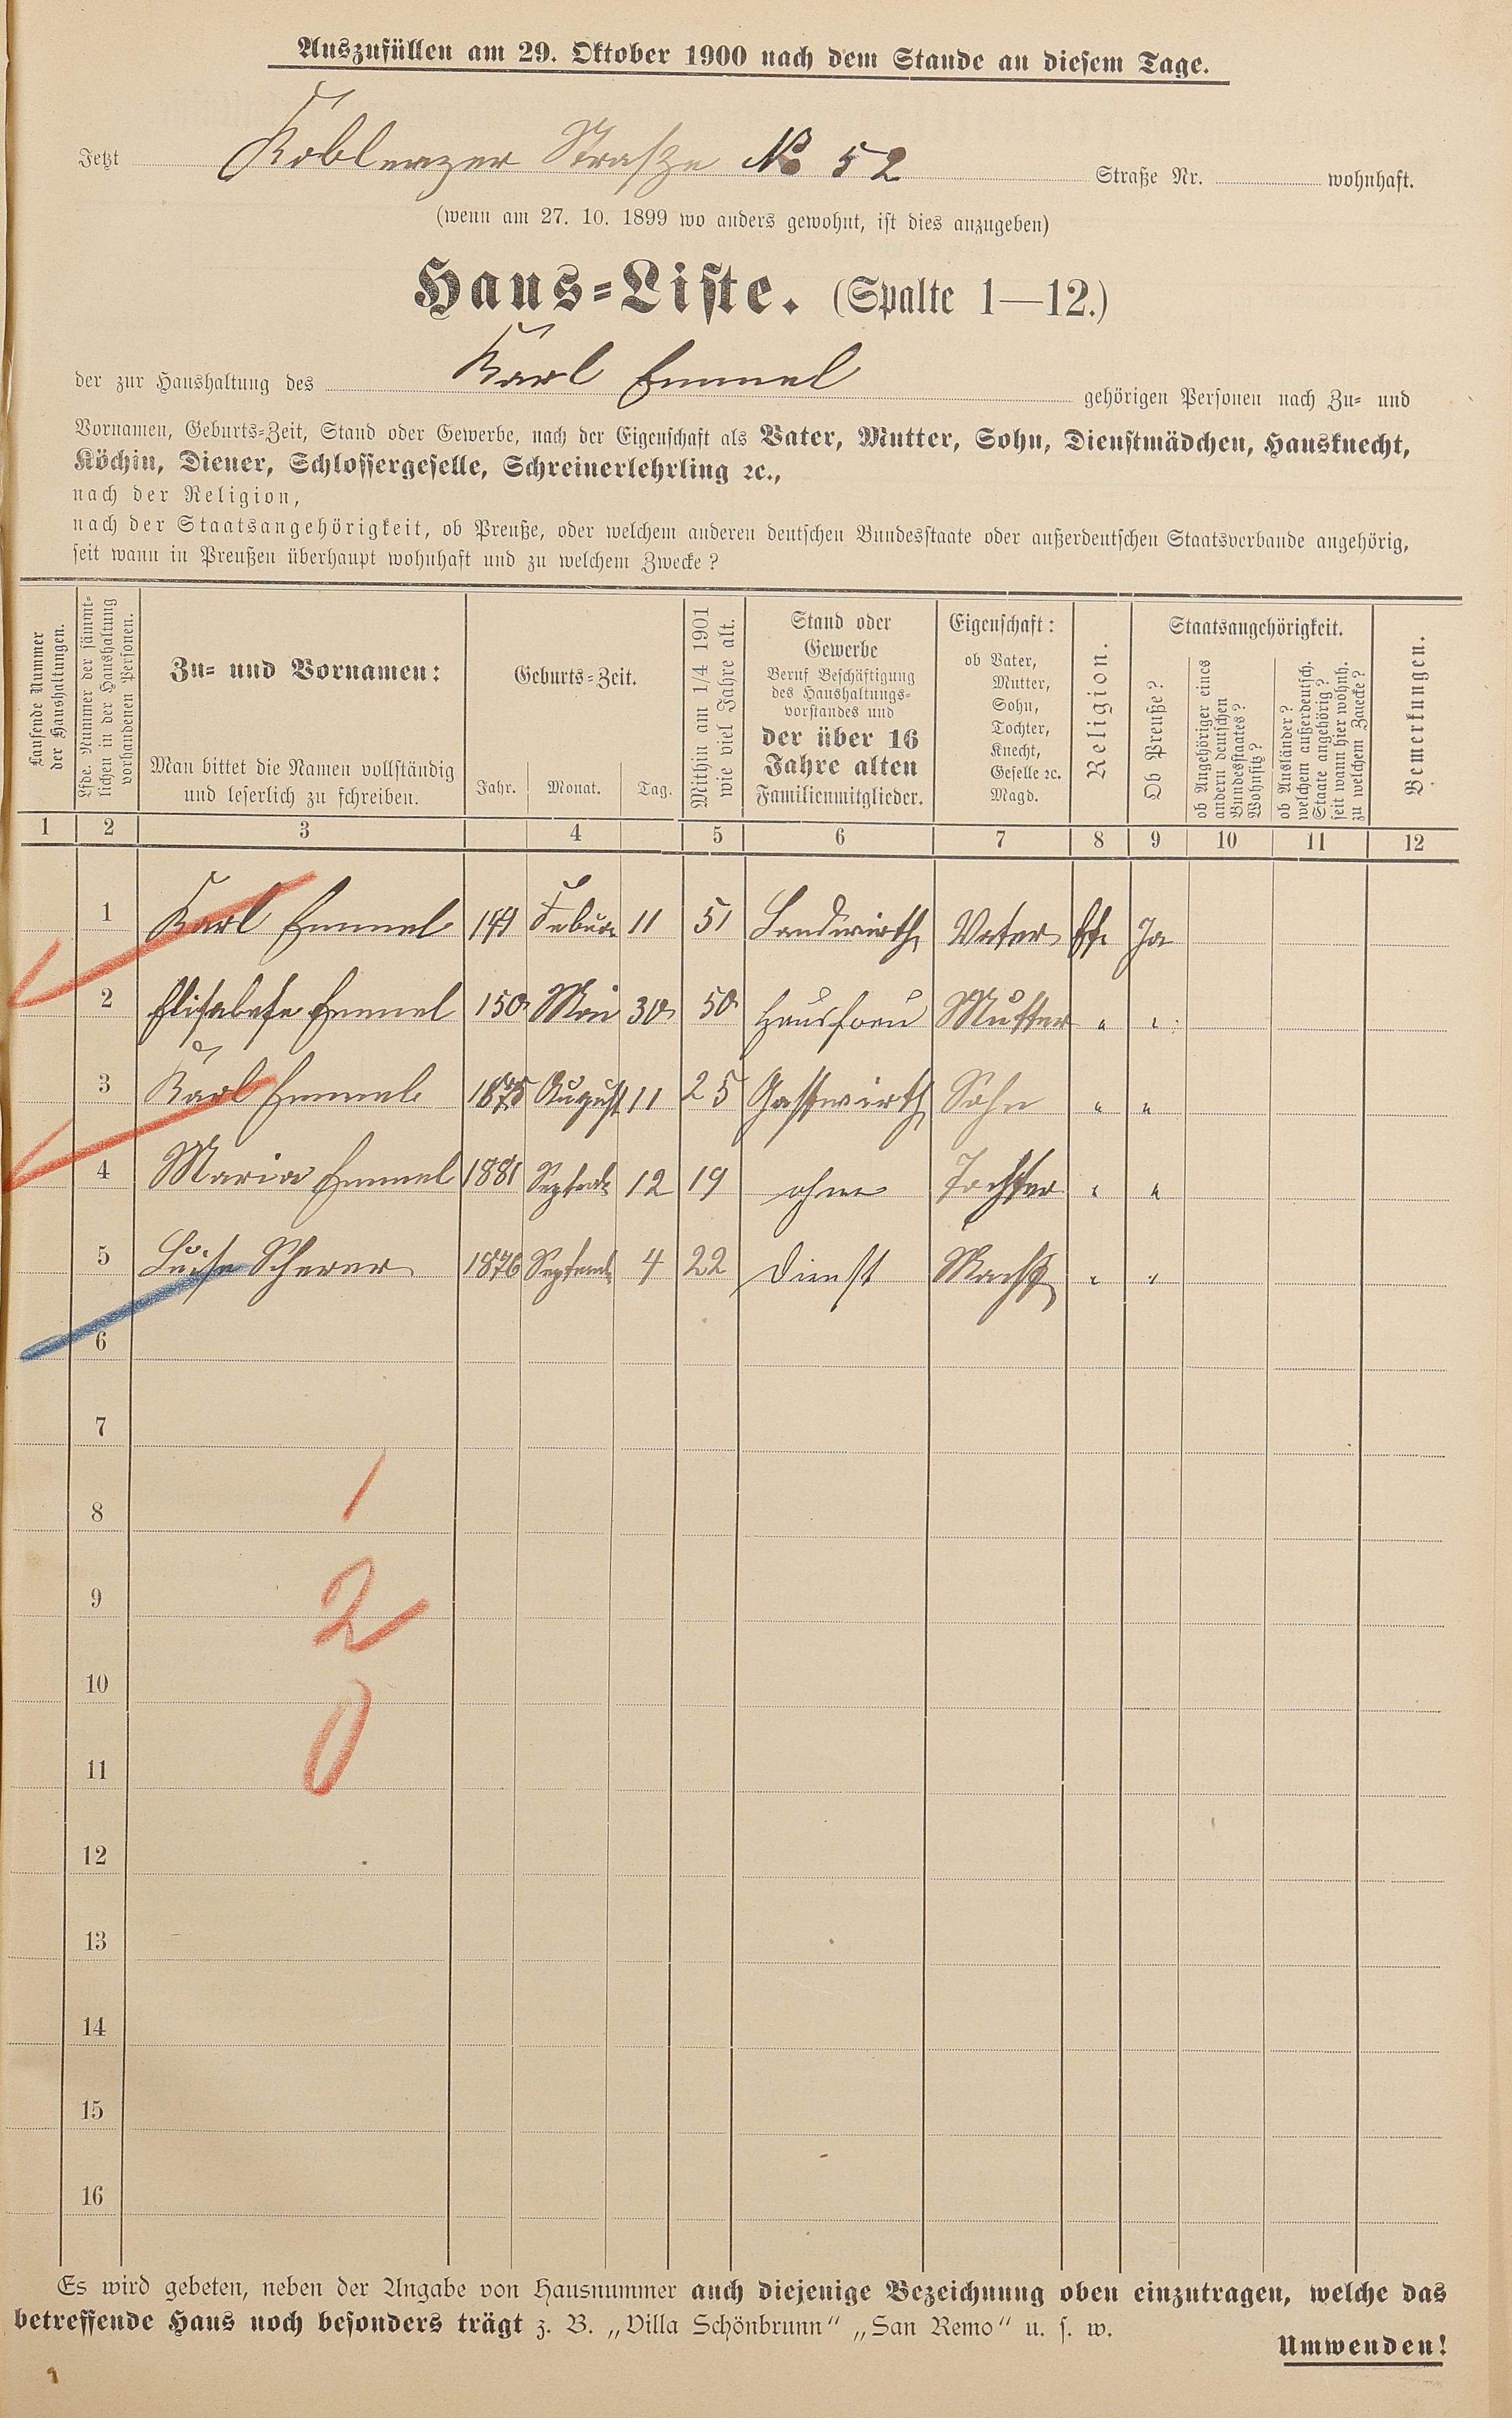 Auszufüllen am 29. Oktober 1900 nach dem Stande an diesem Tage.
Jetzt Koblenzer Straße No 52 Straße Nr. wohnhaft.
(wenn am 27. 10. 1899 wo anders gewohnt, ist dies anzugeben)
Haus-Liste. (Spalte 1—12.)
der zur Haushaltung des Karl Emmel gehörigen Personen nach Zu- und
Vornamen, Geburts-Zeit, Stand oder Gewerbe, nach der Eigenschaft als Vater, Mutter, Sohn, Dienstmädchen, Hausknecht,
Köchin, Diener, Schlossergeselle, Schreinerlehrling ꝛc.,
nach der Religion,
nach der Staatsangehörigkeit, ob Preuße, oder welchem anderen deutschen Bundesstaate oder außerdeutschen Staatsverbande angehörig,
seit wann in Preußen überhaupt wohnhaft und zu welchem Zwecke?
Laufende Nummer
der Haushaltungen.
Lfde. Nummer der sämmt-
lichen in der Haushaltung
vorhandenen Personen.
Zu- und Vornamen:
Man bittet die Namen vollständig
und leserlich zu schreiben.
Geburts-Zeit.
Jahr. Monat. Tag.
Mithin am 1/4 1901
wie viel Jahre alt.
Stand oder
Gewerbe
Beruf Beschäftigung
des Haushaltungs-
vorstandes und
der über 16
Jahre alten
Familienmitglieder.
Eigenschaft:
ob Vater,
Mutter,
Sohn,
Tochter,
Knecht,
Geselle ꝛc.
Magd.
Religion.
Staatsangehörigkeit.
Ob Preuße?
ob Angehöriger eines
andern deutschen
Bundesstaates?
Wohnsitz?
ob Ausländer?
welchem außerdeutsch.
Staate angehörig?
seit wann hier wohnh.
zu welchem Zwecke?
Bemerkungen.
1 2 3 4 5 6 7 8 9 10 11 12
1 Karl Emmel Februar 11 51 Landwirth Vater Ja
2 Elisabete Emmel 150 Mai 30 50 Hausfrau Mutter " "
3 Karl Emmel 1875 August 11 25 Gastwirth Sohn " "
4 Maria Emmel 1881 Septemb 12 19 ohne Tochter " "
5 Luise Scherer 1876 Septemb 4 22 Dienst " "
6
7
8 1
9 2
10
11 0
12
13
14
15
16
Es wird gebeten, neben der Angabe von Hausnummer auch diejenige Bezeichnung oben einzutragen, welche das
betreffende Haus noch besonders trägt z. B. „Villa Schönbrunn“ „San Remo“ u. s. w.
Umwenden!